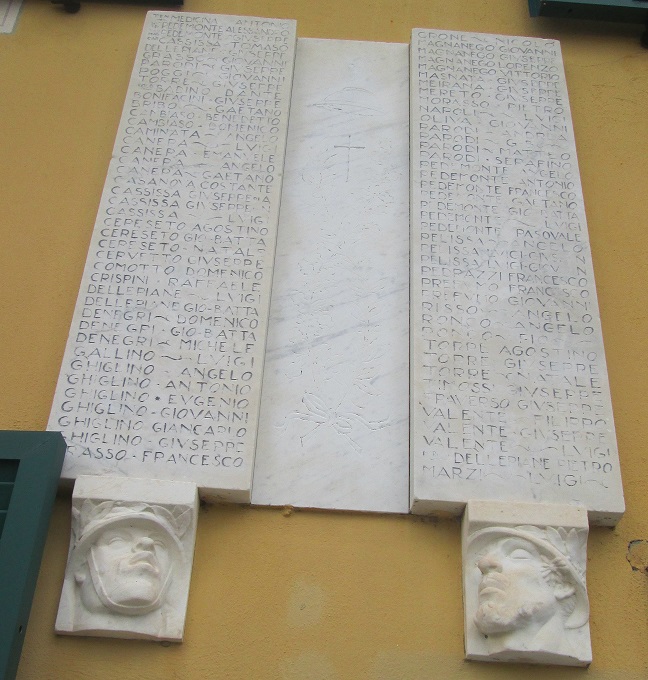 TEN. MEDICINA ANTONIO
PEDEMONTE ALESSANDRO
PEDEMONTE GIUSEPPE
CASSISSA TOMASO
DELLEPIANE GIUSEPPE
GRASSO GIOVANNI
PARODI GIUSEPPE
POGGIO GIOVANNI
GIUSEPPE
DANTE
BONIFACINI GIUSEPPE
BRIBO GAETANO
CAMBIASO BENEDETTO
CAMBIASO DOMENICO
CAMINATA ANGELO
CANEPA LUIGI
CANEPA EMANUELE
CANEPA ANGELO
CANEPA GAETANO
CASANOVA COSTANTE
CASSISSA GIUSEPPE
CASSISSA GIUSEPPE
CASSISSA LUIGI
CERESETO AGOSTINO
CERESETO GIO-BATTA
CERESETO - NATALE
CERVETTO GIUSEPPE
COMOTTO DOMENICO
CRISPINI RAFFAELE
DELLEPIANE LUIGI
DELLEPIANE GIO-BATTA
DENEGRI DOMENICO
DENEGRI GIO-BATTA
DENEGRI MICHELE
GALLINO LUIGI
GHIGLINO ANGELO
GHIGLINO - ANTONIO
GHIGLINO • EUGENIO
GHIGLINO - GIOVANNI
GHIGLINO GIANCARLO
GHIGLINO - GIUSEPPE
GRASSO - FRANCESCO
GRONE NICOLA
MAGNANEGO GIOVANNI
MAGNANEGO GIUSEPPE
MAGNANEGO LORENZO
MAGNANEGO VITTORIO
MASNATA GIUSEPPE
MEIRANA GIUSEPPE
MERETO GIUSEPPE
MORASSO PIETRO
NAPOLI LUIGI
OLIVA GIOVANNI
PARODI ANDREA
PARODI
PARODI MATTEO
PARODI - SERAFINO
PEDEMONTE ANGELO
PEDEMONTE ANTONIO
PEDEMONTE FRANCESCO
PEDEMONTE GAETANO
PEDEMONTE GIO BATTA
PEDEMONTE LUIGI
PEDEMONTE PASQUALE
PELISSA ANGELO
PELISSA
PELISSA GIOVANNI
PEDRAZZI FRANCESCO
FRANCESCO
GIOVANNI
RISSO ANGELO
RONCO ANGELO
TORRE AGOSTINO
TORRE GIUSEPPE
TORRE NATALE
GIUSEPPE
TRAVERSO GIUSEPPE
VALENTE FILIPPO
VALENTE GIUSEPPE
VALENTE LUIGI
DELLEPIANE PIETRO
MARZI LUIGI